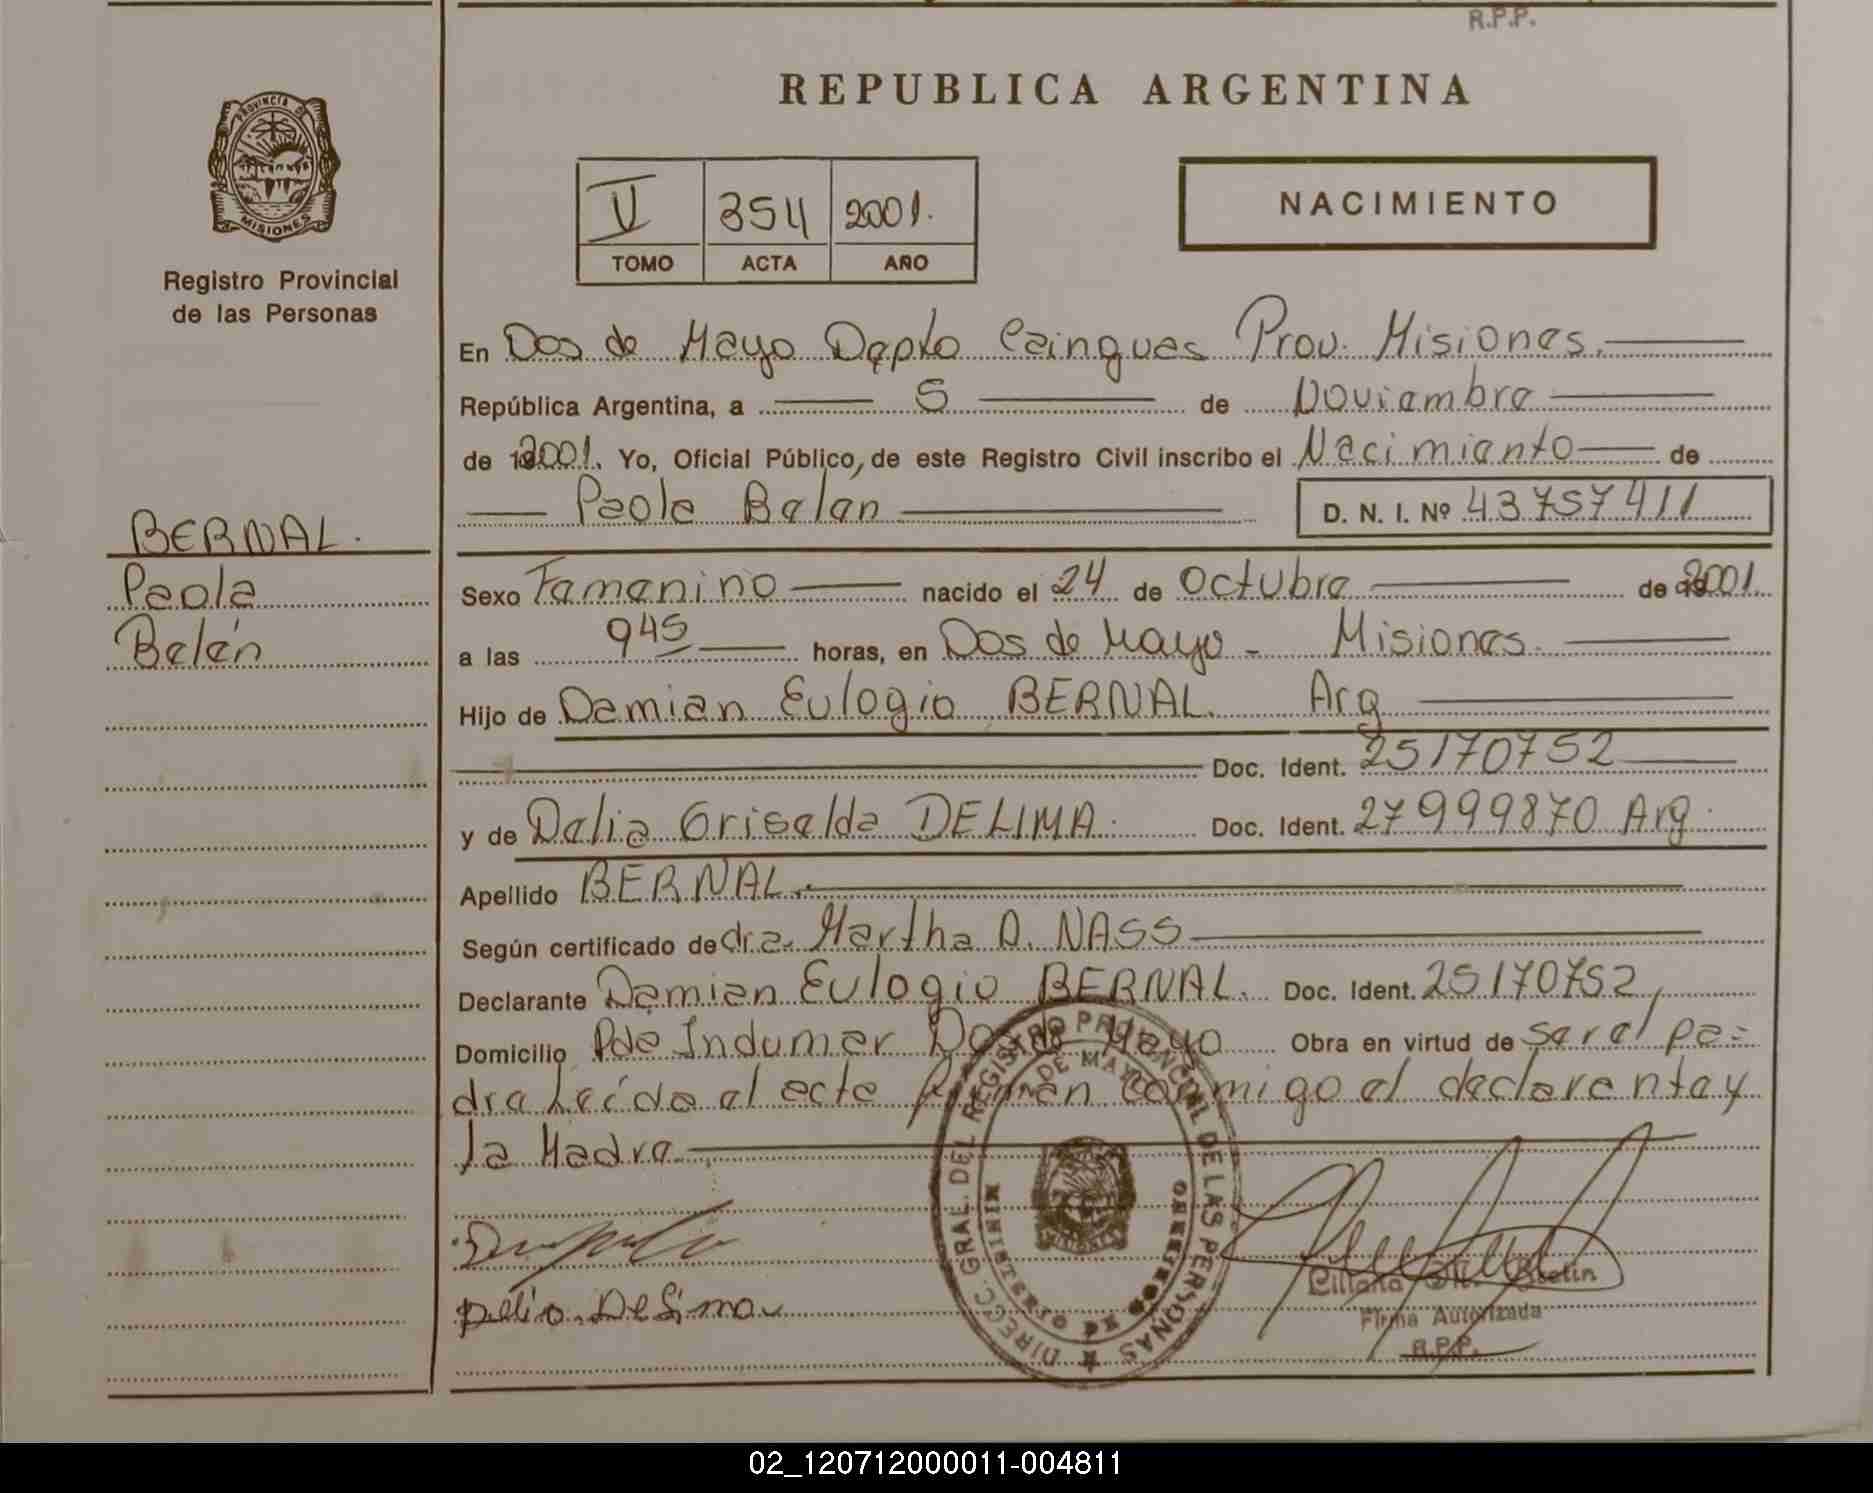 R.P.P.
REPUBLICA ARGENTINA
PROVINCIA DE
MISIONES
Registro Provincial
de las Personas
V 354 2001.
TOMO ACTA AÑO
NACIMIENTO
En Dos de Mayo Depto Cainguas Prov. Misiones.
República Argentina, a 5 de Noviembre
de 2001. Yo, Oficial Público, de este Registro Civil inscribo el Nacimiento de
Paola Belén D. N. I. Nº 43757411
BERNAL.
Paola
Belén
Sexo Femenino nacido el 24 de Octubre de 2001.
a las 945 horas, en Dos de Mayo - Misiones.
Hijo de Damian Eulogio BERNAL. Arg
Doc. Ident. 25170752
y de Delia Griselda DELIMA. Doc. Ident. 27999870 Arg.
Apellido BERNAL.
Según certificado de dra. Martha D. NASS
Declarante Damian Eulogio BERNAL. Doc. Ident. 25170752,
Domicilio Pde Indumar Dos de Mayo Obra en virtud de ser el pa=
dre Leída el acta firman conmigo el declarante y
la Madre
DIRECC. GRAL. DEL REGISTRO PROVINCIAL DE LAS PERSONAS
DE MAYO
MINISTERIO DE GOBIERNO
MISIONES
Delia Delima
Liliana
Firma Autorizada
R.P.P.
02_120712000011-004811